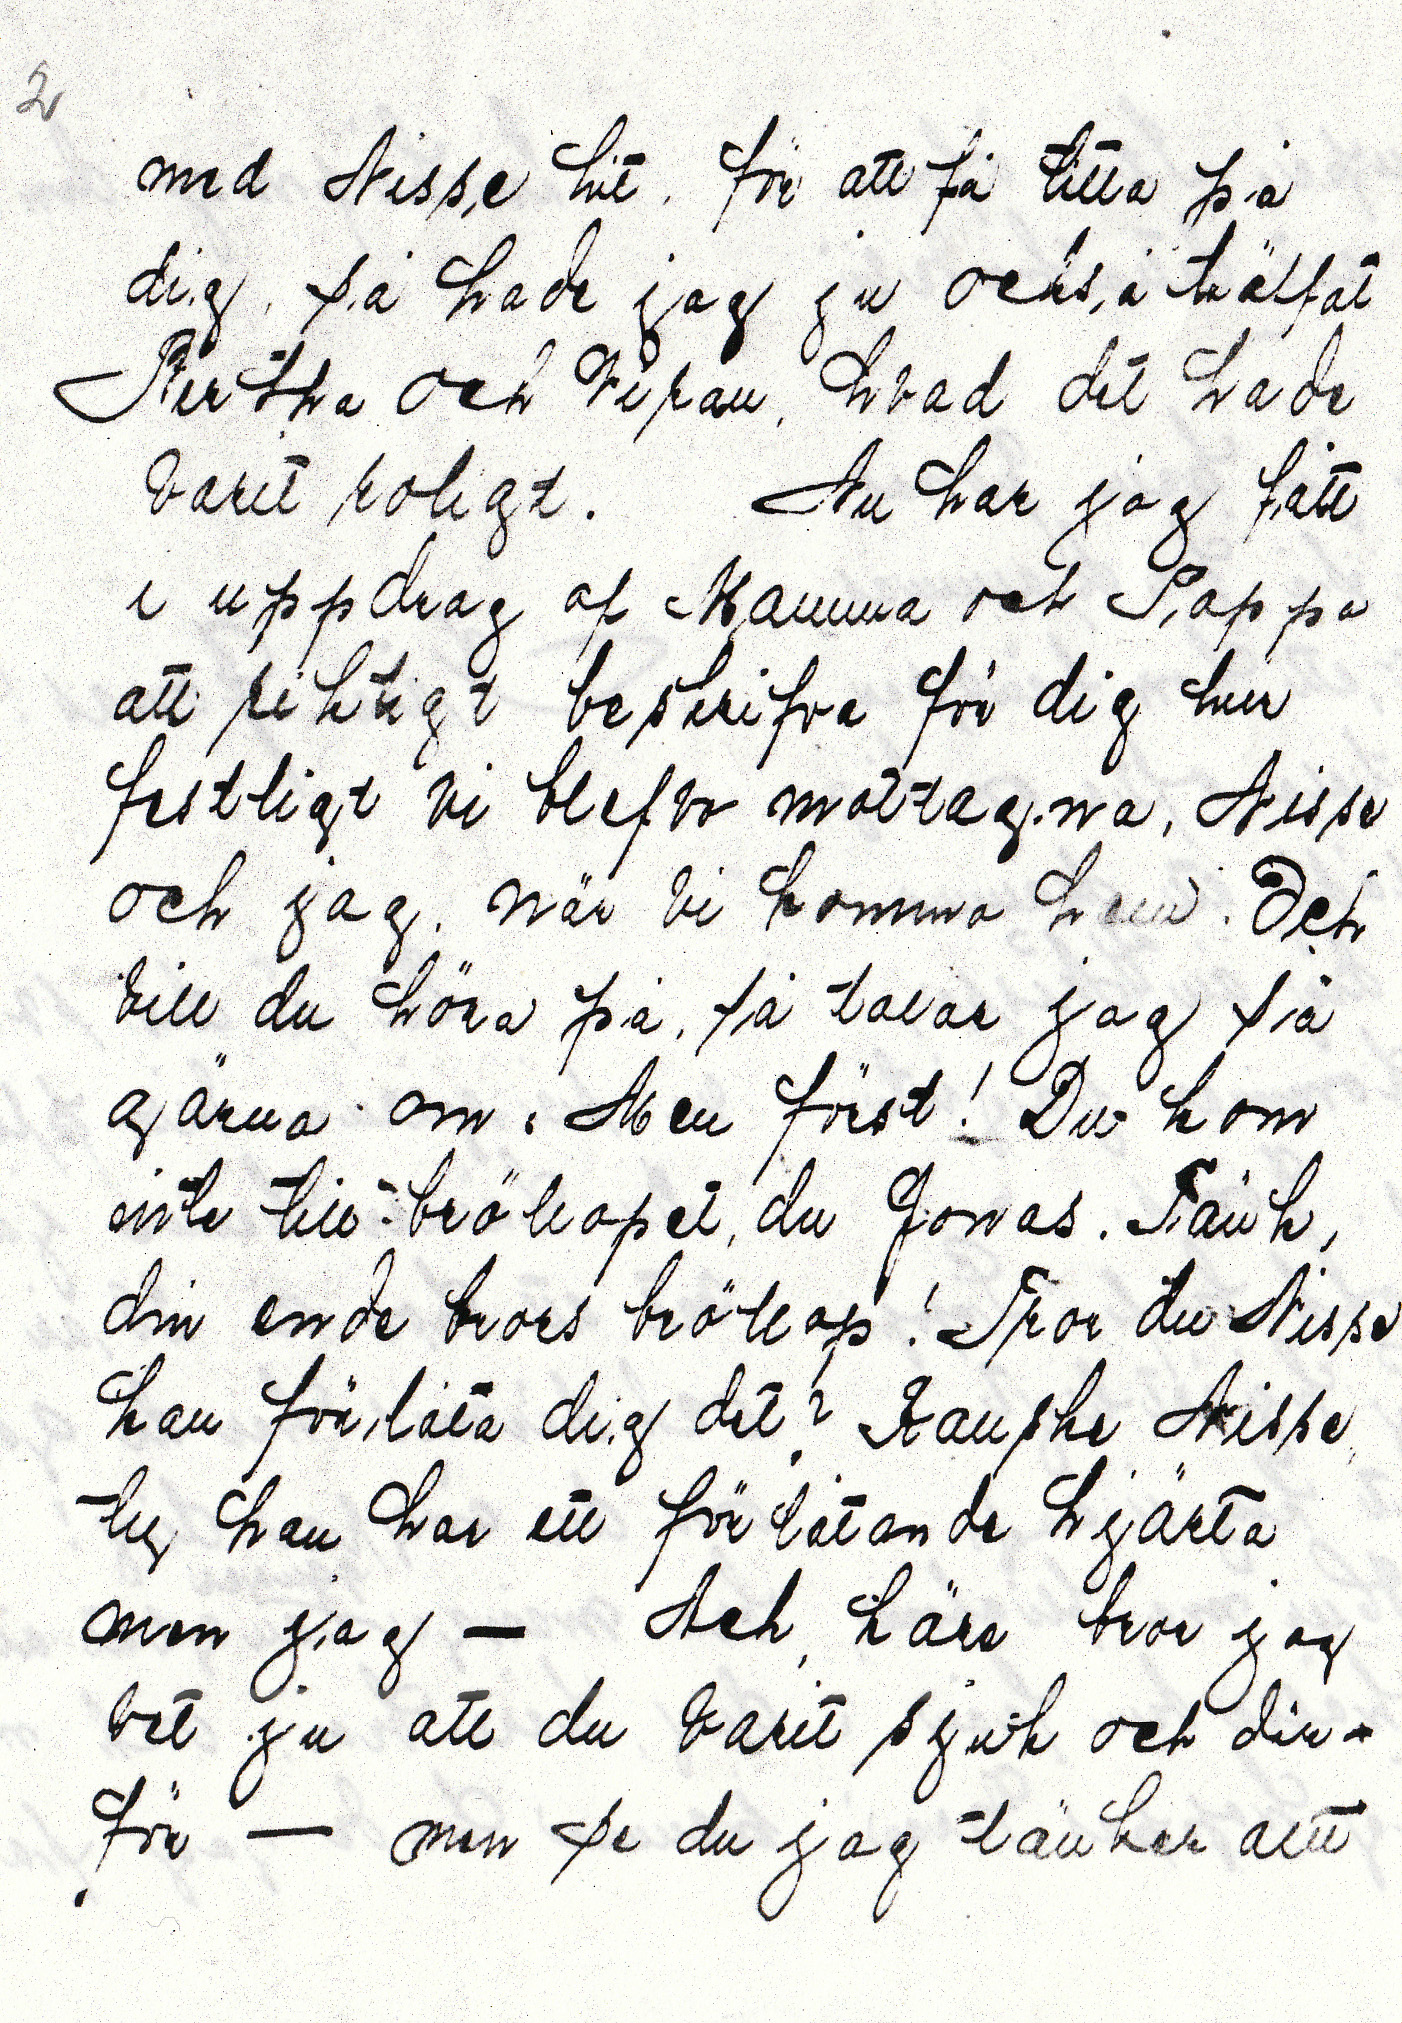 2
med Nisse hit, för att få titta på
dig, så hade jag ju också träffat
Bertha och Veran, hvad det hade
varit roligt. Nu har jag fått
i uppdrag af Mamma och Pappa
att riktigt beskrifva för dig hur
festligt vi blefvo mottagna, Nisse
och jag, när vi kommo hem. Och
vill du höra på, så talar jag så
gärna om. Men först! Du kom
inte till bröllopet, du Jonas. Tänk,
din ende brors bröllop! Tror du Nisse
kan förlåta dig det? Kanske Nisse,
ty han har ett förlåtande hjärta
men jag — Ack, käre bror jag
vet ju att du varit sjuk och där-
för — men se du jag tänker att